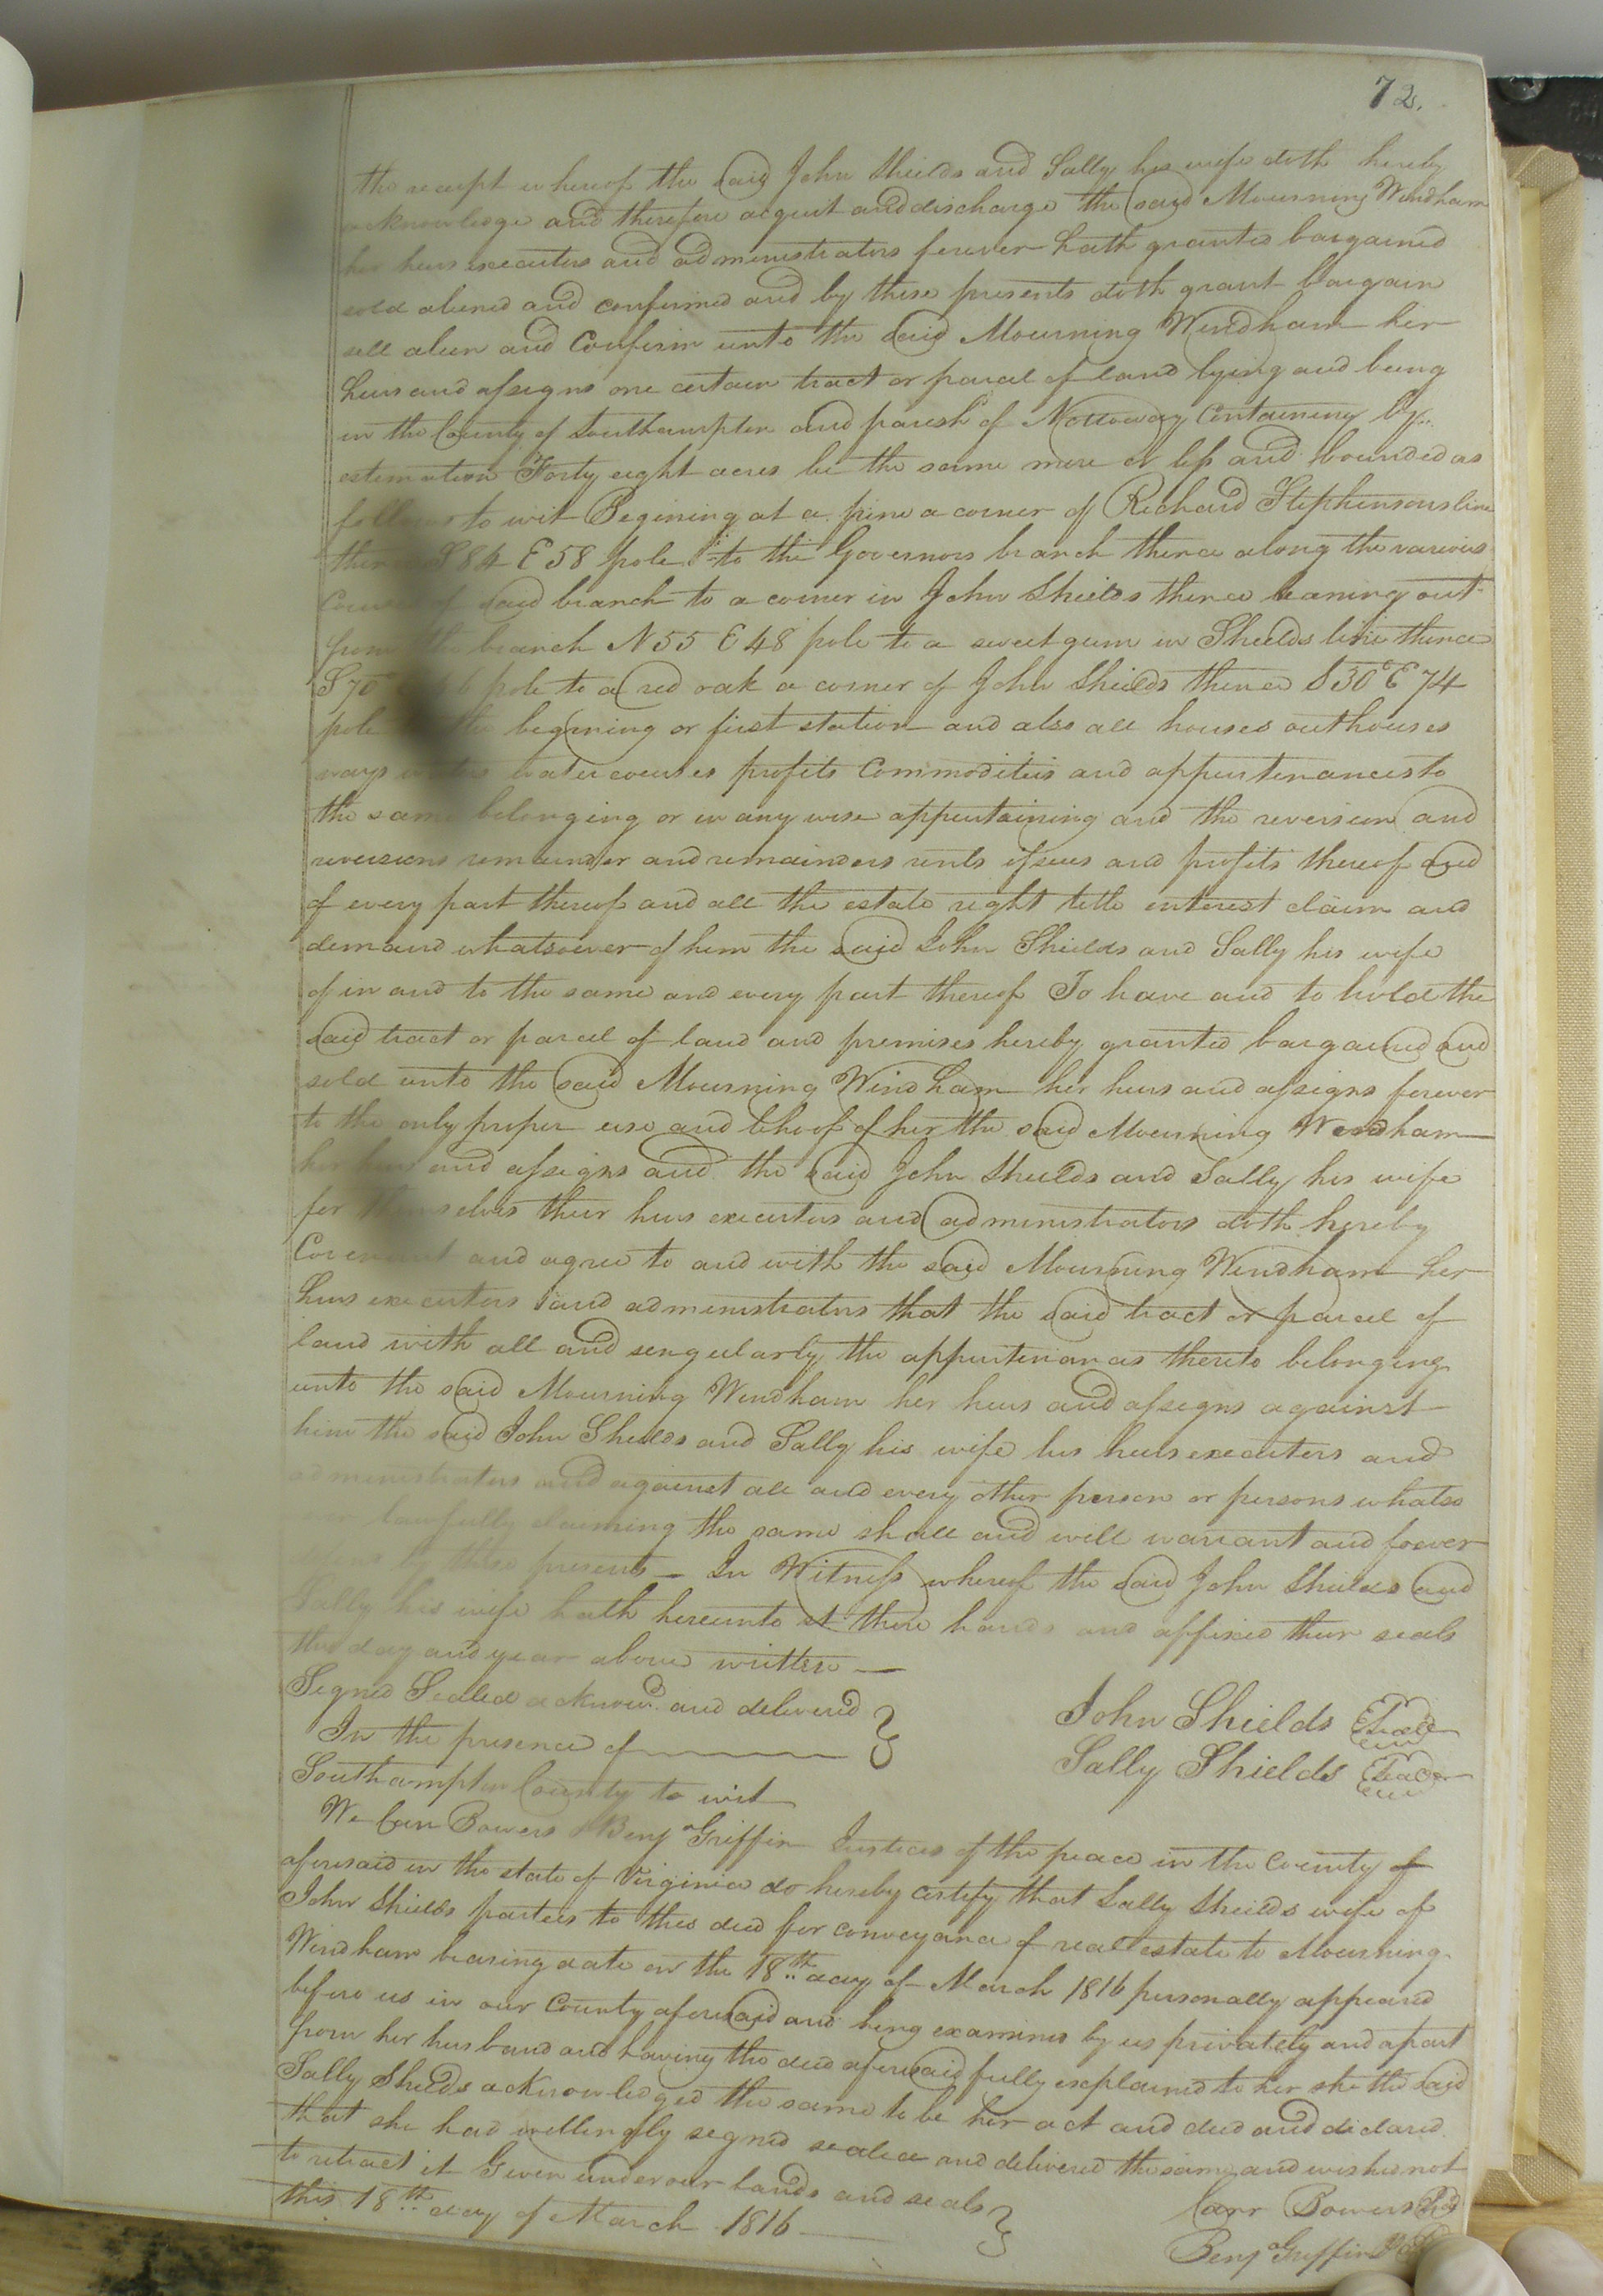 72.
the receipt whereof the said John Shields and Sally his wife doth hereby
acknowledge and therefore acquit and discharge the said Mourning Windham
her heirs executors and administrators forever hath granted bargained
sold aliened and confirmed and by these presents doth grant bargain
sell alien and Confirm unto the said Mourning Windham her
heirs and assigns one certain tract or parcel of land lying and being
in the County of Southampton and parish of Nottoway Containing by
estimation Forty eight acres be the same more or less and bounded as
follows to wit Begining at a pine a corner of Richard Stephensons line
thence S 84 E 58 pole to the Governors branch thence along the various
Courses of said branch to a corner in John Shields thence leaning out
from the branch N 55 E 48 pole to a sweet gum in Shields line thence
S 70 pole to a red oak a corner of John Shields thence S 30 E 74
pole the begining or first station and also all houses outhouses
ways waters water courses profits Commodities and appurtenances to
the same belonging or in any wise appurtaining and the reversion and
reversions remainder and remainders rents issues and profits thereof and
of every part thereof and all the estate right title interest claim and
demand whatsoever of him the said John Shields and Sally his wife
of in and to the same and every part thereof To have and to hold the
said tract or parcel of land and premises hereby granted bargained and
sold unto the said Mourning Windham her heirs and assigns forever
to the only proper use and behoof of her the said Mourning Windham
her heirs and assigns and the said John Shields and Sally his wife
for themselves their heirs executors and administrators doth hereby
Covenant and agree to and with the said Mourning Windham her
heirs executors and administrators that the said tract or parcel of
land with all and singularly the appurtenances thereto belonging
unto the said Mourning Windham her heirs and assigns against
him the said John Shields and Sally his wife his heirs executors and
administrators and against all and every other person or persons whatso
ever lawfully claiming the same shall and will warrant and forever
by these presents — In Witness whereof the said John Shields and
Sally his wife hath hereunto set there hands and affixed their seals
the day and year above written —
Signed Sealed acknowd. and delivered
In the presence of
John Shields Seal
Sally Shields Seal
Southampton County to wit
We Carr Bowers & Benja Griffin Justices of the peace in the County of
aforesaid in the state of Virginia do hereby certify that Sally Shields wife of
John Shields parties to this deed for conveyance of real estate to Mourning
Windham bearing date on the 18th day of March 1816 personally appeared
before us in our County aforesaid and being examined by us privately and apart
from her husband and having the deed aforesaid fully explained to her she the said
Sally Shields acknowledged the same to be her act and deed and declared
that she had willingly signed sealed and delivered the same and wished not
to retract it Given under our hands and seals
this 18th day of March 1816
Carr Bowers
Benja Griffin